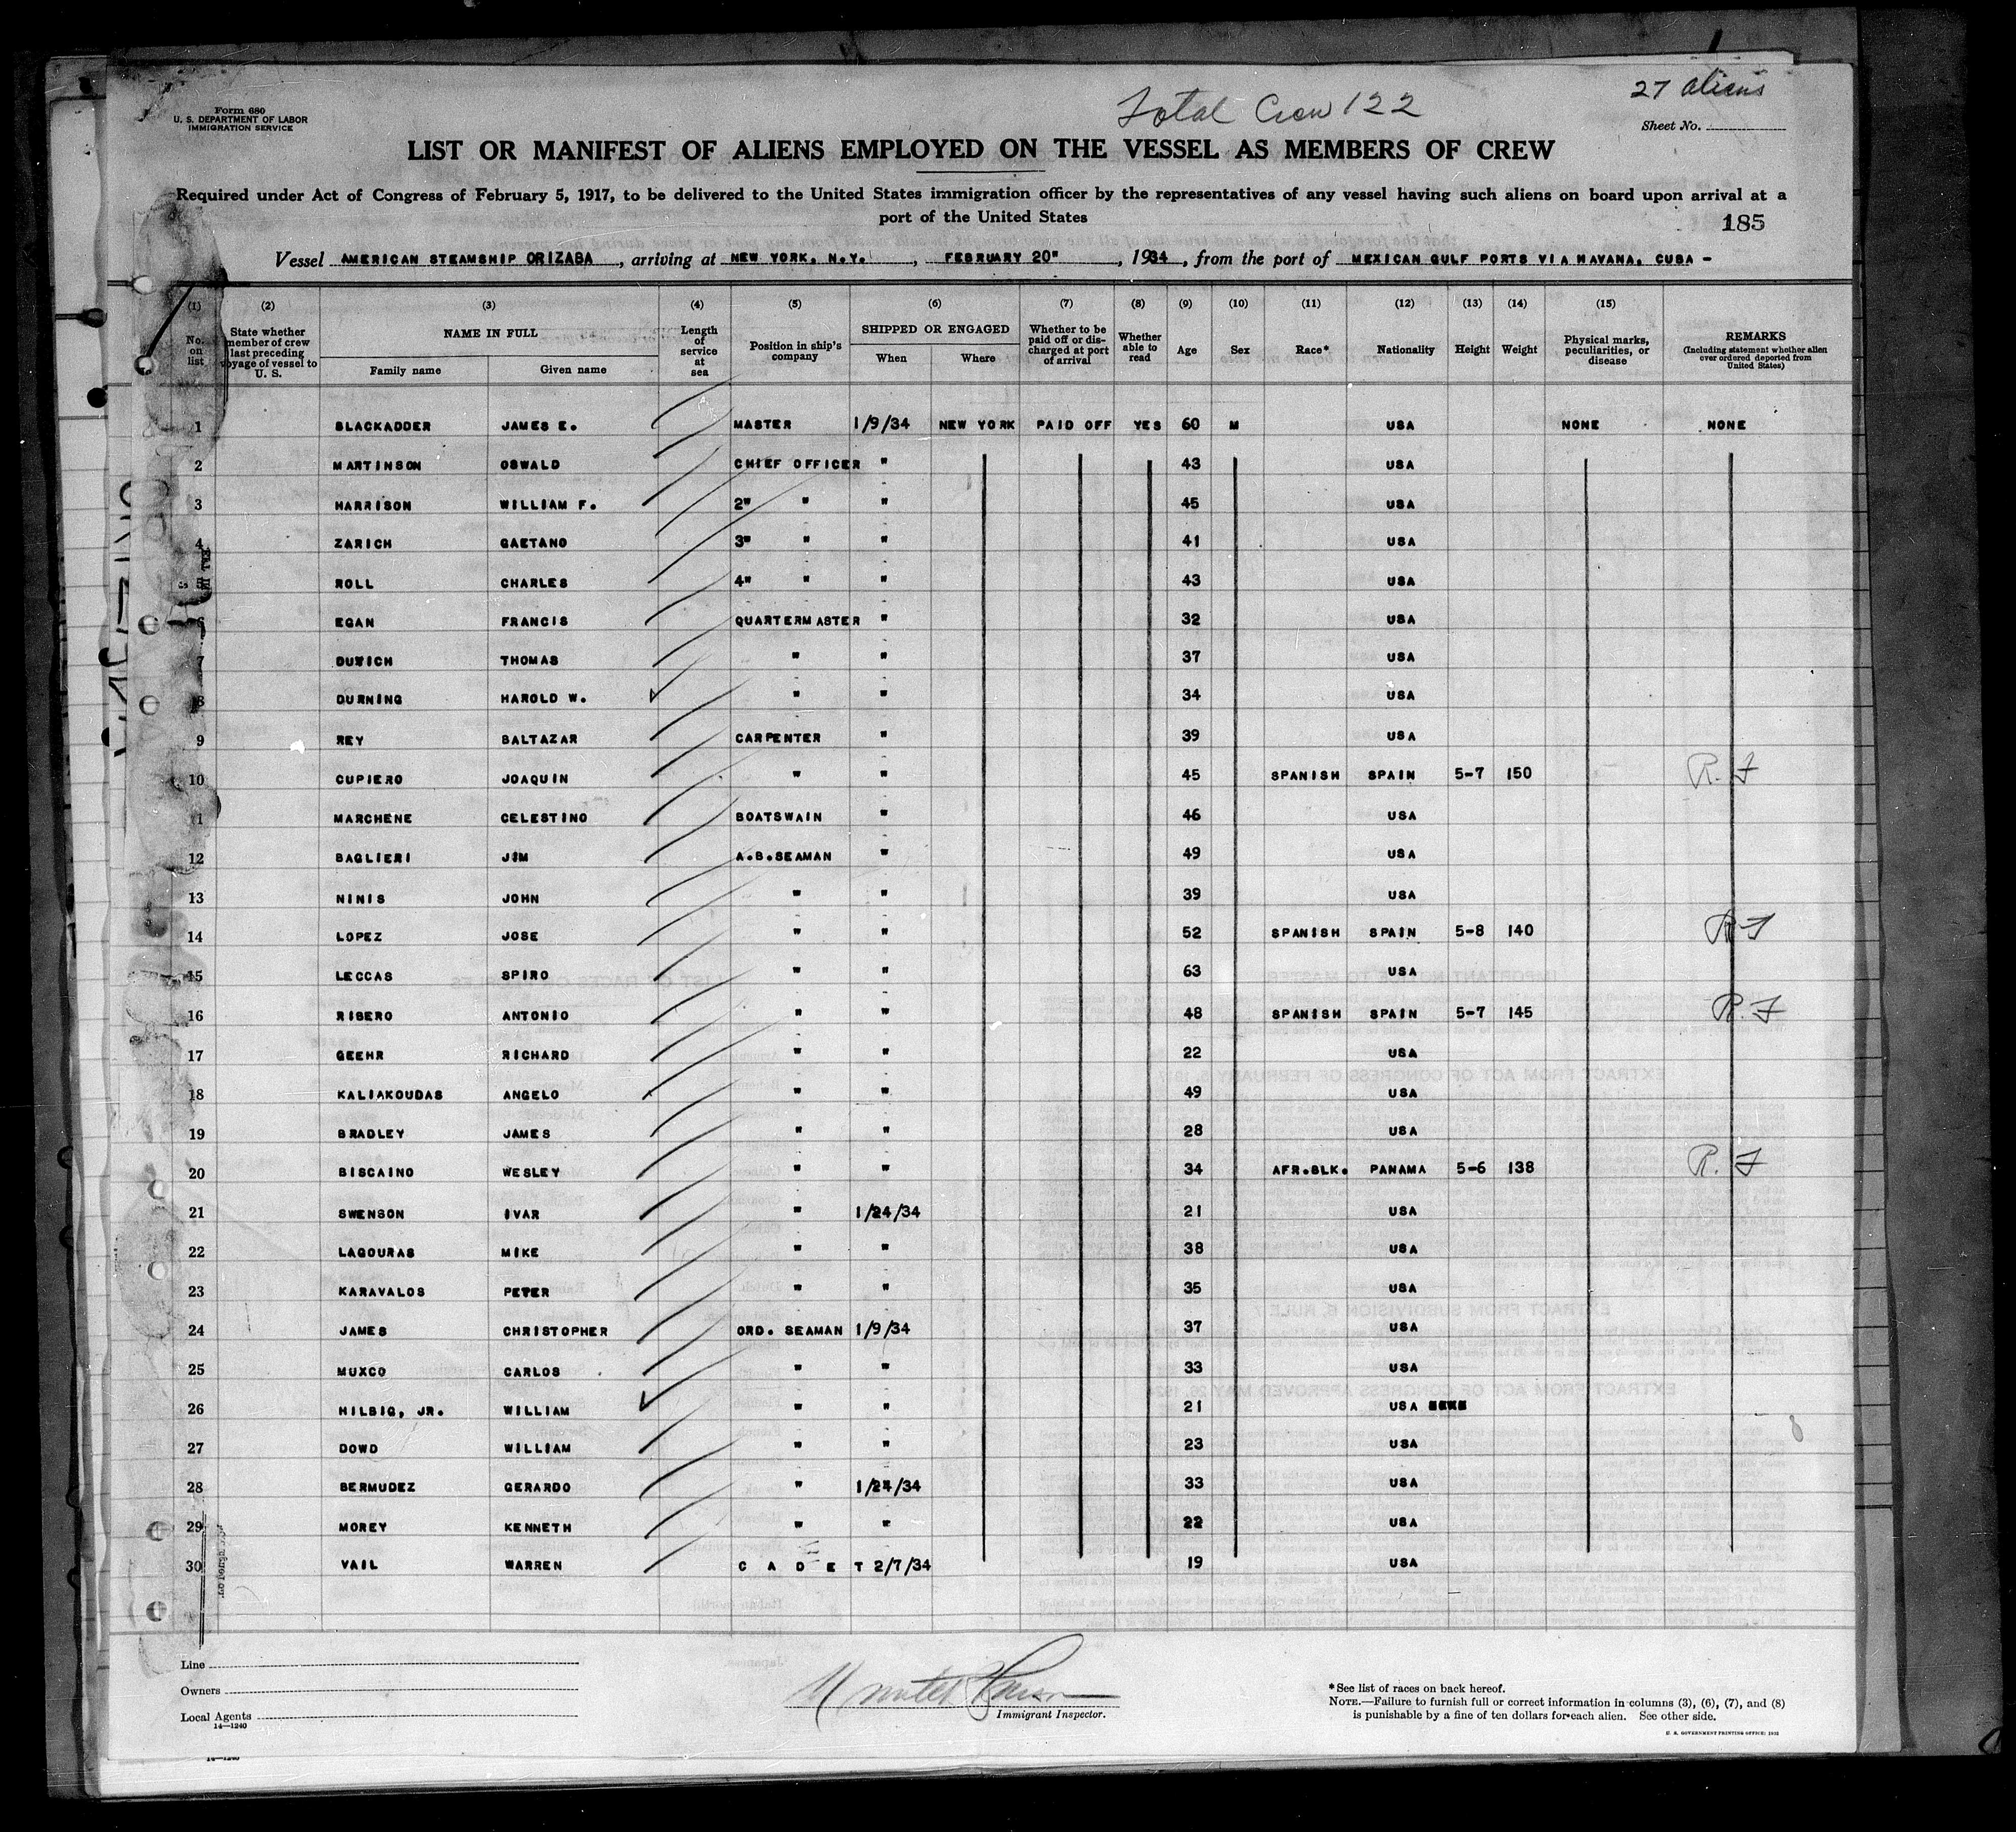 27 aliens
Total Crew 122
Form 680
U. S. DEPARTMENT OF LABOR
IMMIGRATION SERVICE
Sheet No.
LIST OR MANIFEST OF ALIENS EMPLOYED ON THE VESSEL AS MEMBERS OF CREW
Required under Act of Congress of February 5, 1917, to be delivered to the United States immigration officer by the representatives of any vessel having such aliens on board upon arrival at a
port of the United States
185
Vessel AMERICAN STEAMSHIP ORIZABA, arriving at NEW YORK, N.Y., FEBRUARY 20", 1934, from the port of MEXICAN GULF PORTS VIA HAVANA, CUBA -
(1) (2) (3) (4) (5) (6) (7) (8) (9) (10) (11) (12) (13) (14) (15)
No. on list
State whether member of crew last preceding voyage of vessel to U. S.
NAME IN FULL
Family name Given name
Length of service at sea
Position in ship's company
SHIPPED OR ENGAGED
When Where
Whether to be paid off or discharged at port of arrival
Whether able to read
Age Sex Race* Nationality Height Weight
Physical marks, peculiarities, or disease
REMARKS
(Including statement whether alien ever ordered deported from United States)
1 BLACKADDER JAMES E. MASTER 1/9/34 NEW YORK PAID OFF YES 60 M USA NONE NONE
2 MARTINSON OSWALD CHIEF OFFICER " 43 USA
3 HARRISON WILLIAM F. 2" " " 45 USA
4 ZARICH GAETANO 3" " " 41 USA
5 ROLL CHARLES 4" " " 43 USA
6 EGAN FRANCIS QUARTERMASTER " 32 USA
7 THOMAS " " 37 USA
8 DURNING HAROLD W. " " 34 USA
9 REY BALTAZAR CARPENTER " 39 USA
10 CUPIERO JOAQUIN " " 45 SPANISH SPAIN 5-7 150 R. F
11 MARCHENE CELESTINO BOATSWAIN " 46 USA
12 BAGLIERI JIM A.B.SEAMAN " 49 USA
13 NINIS JOHN " " 39 USA
14 LOPEZ JOSE " " 52 SPANISH SPAIN 5-8 140 R F
15 LECCAS SPIRO " " 63 USA
16 RIBERO ANTONIO " " 48 SPANISH SPAIN 5-7 145 R. F
17 GEEHR RICHARD " " 22 USA
18 KALIAKOUDAS ANGELO " " 49 USA
19 BRADLEY JAMES " " 28 USA
20 BISCAINO WESLEY " " 34 AFR.BLK. PANAMA 5-6 138 R. F
21 SWENSON IVAR " 1/24/34 21 USA
22 LAGOURAS MIKE " " 38 USA
23 KARAVALOS PETER " " 35 USA
24 JAMES CHRISTOPHER ORD. SEAMAN 1/9/34 37 USA
25 MUXCO CARLOS " " 33 USA
26 HILBIG, JR. WILLIAM " " 21 USA
27 DOWD WILLIAM " " 23 USA
28 BERMUDEZ GERARDO " 1/24/34 33 USA
29 MOREY KENNETH " " 22 USA
30 VAIL WARREN C A D E T 2/7/34 19 USA
Line
Owners
Local Agents
14—1240
Immigrant Inspector.
*See list of races on back hereof.
NOTE.—Failure to furnish full or correct information in columns (3), (6), (7), and (8)
is punishable by a fine of ten dollars for each alien. See other side.
U. S. GOVERNMENT PRINTING OFFICE: 1932